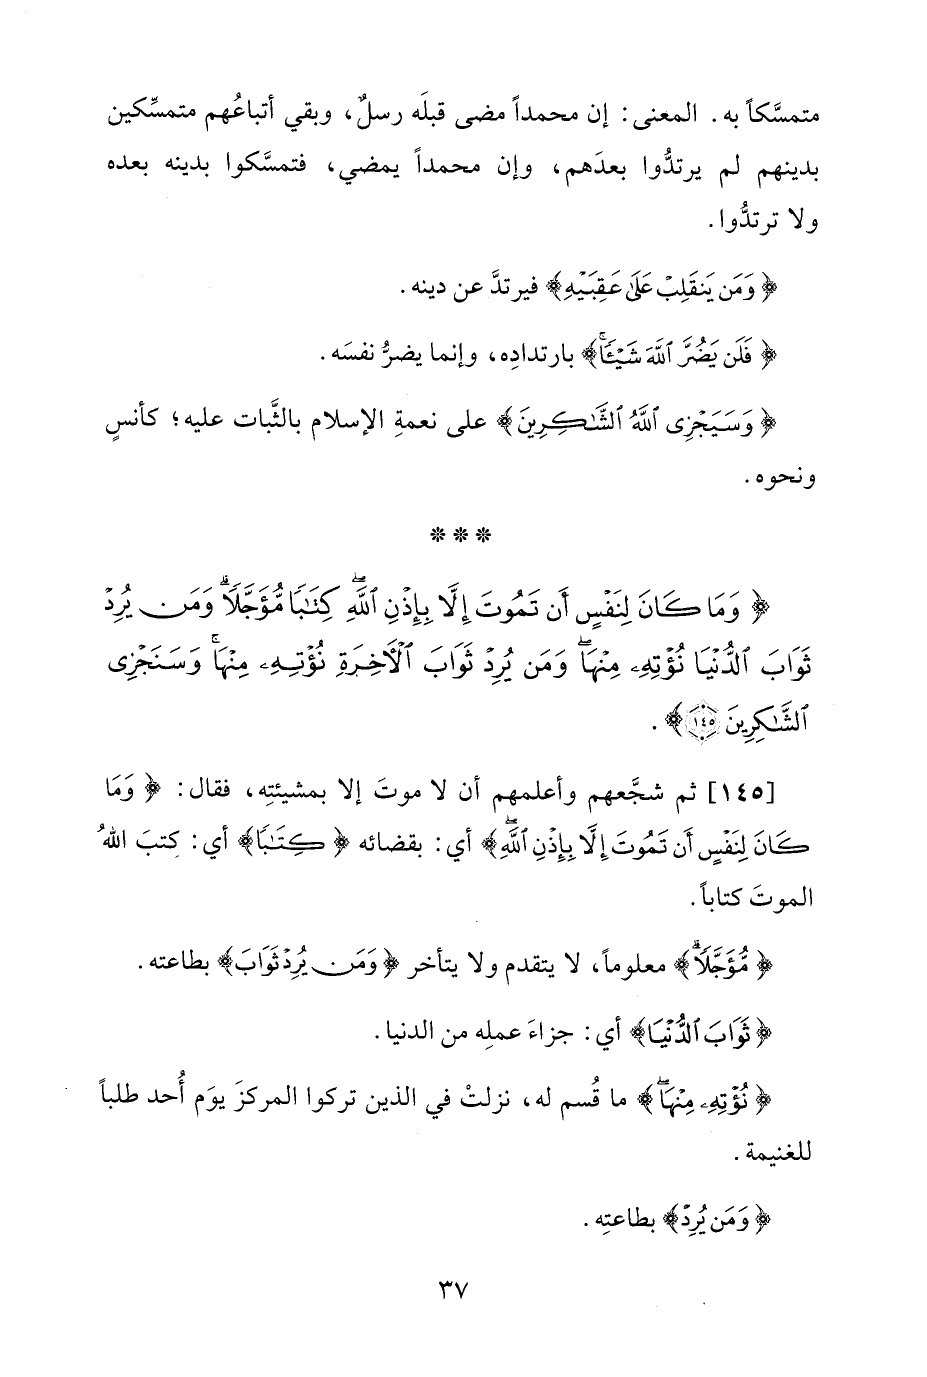 متمسَّكاً به. المعنى: إن محمداً مضى قبلَه رسلٌ، وبقي أتباعُهم متمسِّكين
بدينهم لم يرتدُّوا بعدَهم، وإن محمداً يمضي، فتمسَّكوا بدينه بعده
ولا ترتدُّوا.
﴿وَمَن يَنقَلِبْ عَلَىٰ عَقِبَيْهِ﴾ فيرتدَّ عن دينه.
﴿فَلَن يَضُرَّ ٱللَّهَ شَيْـًٔاۗ﴾ بارتدادِه، وإنما يضرُّ نفسَه.
﴿وَسَيَجْزِى ٱللَّهُ ٱلشَّـٰكِرِينَ﴾ على نعمةِ الإسلام بالثَّبات عليه؛ كأنسٍ
ونحوه.
***
﴿وَمَا كَانَ لِنَفْسٍ أَن تَمُوتَ إِلَّا بِإِذْنِ ٱللَّهِ كِتَـٰبًا مُّؤَجَّلًاۗ وَمَن يُرِدْ
ثَوَابَ ٱلدُّنْيَا نُؤْتِهِۦ مِنْهَاۖ وَمَن يُرِدْ ثَوَابَ ٱلْـَٔاخِرَةِ نُؤْتِهِۦ مِنْهَاۚ وَسَنَجْزِى
ٱلشَّـٰكِرِينَ ١٤٥﴾.
[١٤٥] ثم شجَّعهم وأعلمهم أن لا موتَ إلا بمشيئتِه، فقال: ﴿وَمَا
كَانَ لِنَفْسٍ أَن تَمُوتَ إِلَّا بِإِذْنِ ٱللَّهِۖ﴾ أي: بقضائه ﴿كِتَـٰبًا﴾ أي: كتبَ اللهُ
الموتَ كتاباً.
﴿مُّؤَجَّلًاۗ﴾ معلوماً، لا يتقدم ولا يتأخر ﴿وَمَن يُرِدْ ثَوَابَ﴾ بطاعته.
﴿ثَوَابَ ٱلدُّنْيَا﴾ أي: جزاءَ عملِه من الدنيا.
﴿نُؤْتِهِۦ مِنْهَاۖ﴾ ما قُسم له، نزلتْ في الذين تركوا المركزَ يوَم أُحد طلباً
للغنيمة.
﴿وَمَن يُرِدْ﴾ بطاعتِه.
٣٧